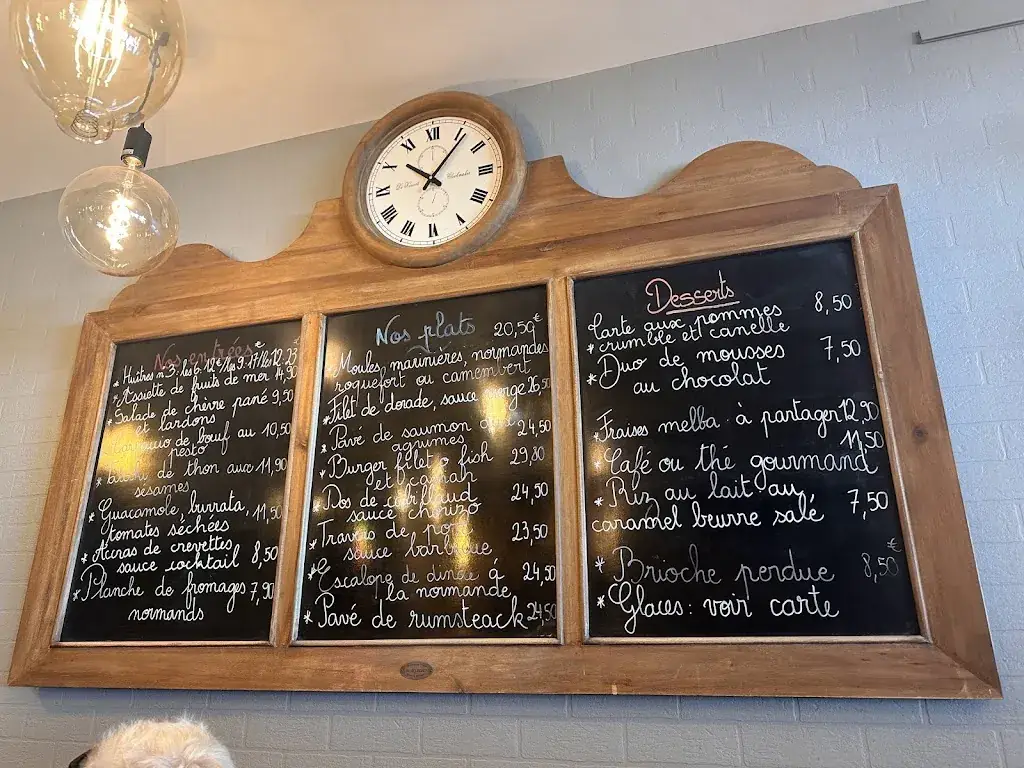 XII
I
II
III
IIII
V
VI
VII
VIII
IX
X
XI
Nos entrées
* Huîtres n°3: les 6: 12€/les 9: 17/les 12: 23
* Assiette de fruits de mer 14,90
* Salade de chèvre pané 9,50
et lardons
de bœuf au 10,50
pesto
* de thon aux 11,90
sésames
* Guacamole, burrata, 11,50
tomates séchées
* Accras de crevettes
sauce cocktail 8,50
* Planche de fromages 7,90
normands
Nos plats 20,50€
* Moules marinières, normandes
roquefort ou camembert
* Filet de dorade, sauce vierge 26,50
* Pavé de saumon aux
agrumes 24,50
* Burger filet o fish
et 29,80
* Dos de cabillaud
sauce chorizo 24,50
* Travers de porc
sauce barbecue 23,50
* Escalope de dinde á 24,50
la normande
* Pavé de rumsteack 24,50
Desserts
* Tarte aux pommes 8,50
crumble et canelle
* Duo de mousses 7,50
au chocolat
* Fraises melba: à partager 12,90
11,50
* Café ou thé gourmand
* Riz au lait au
caramel beurre salé 7,50
* Brioche perdue 8,50€
* Glaces: voir carte